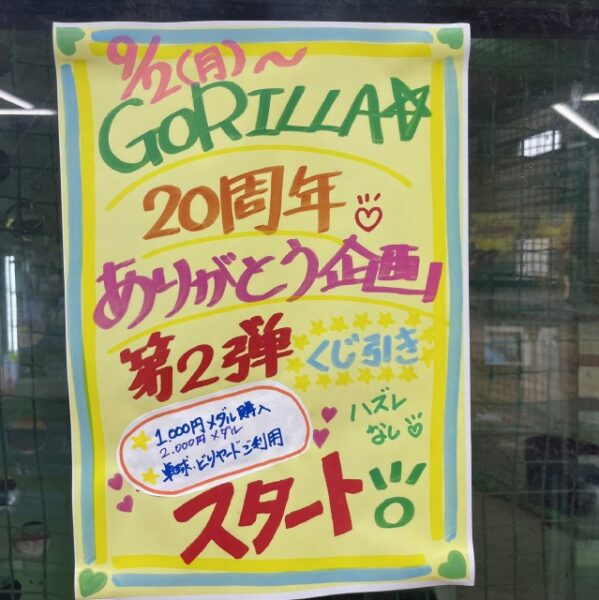 9/2(月)〜
GORILLA☆
20周年
ありがとう企画!
第2弾
くじ引き
1.000円メダル購入
2.000円メダル
卓球・ビリヤードご利用
ハズレ
なし
スタート!